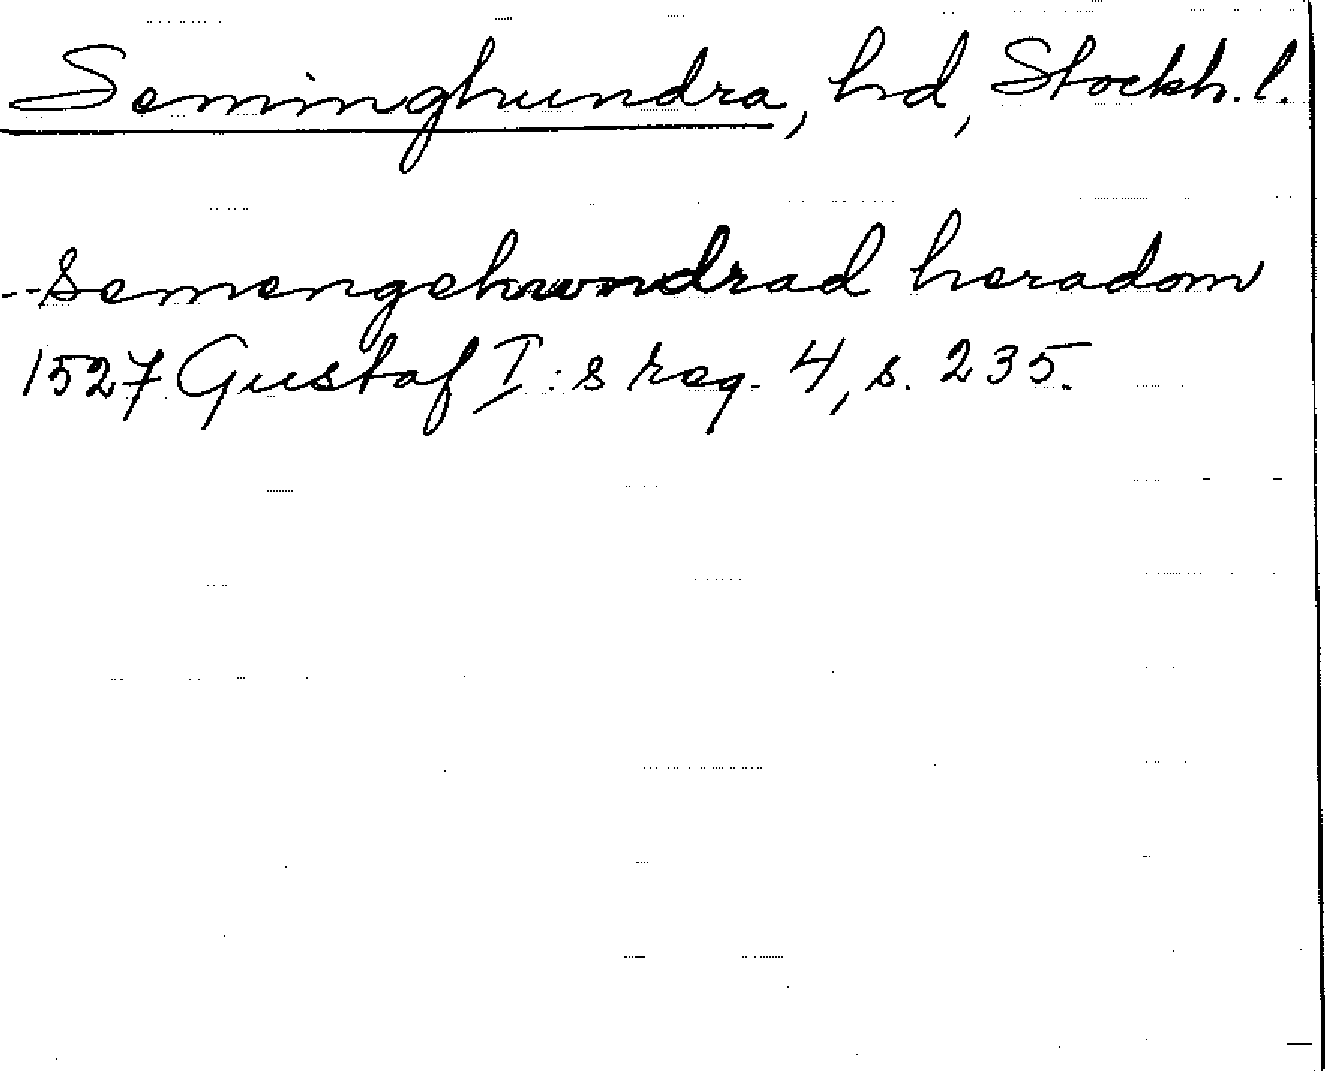 Seminghundra, hd, Stockh. l.
semengehwndrad heradom
1527 Gustaf I:s reg. 4, s. 235.